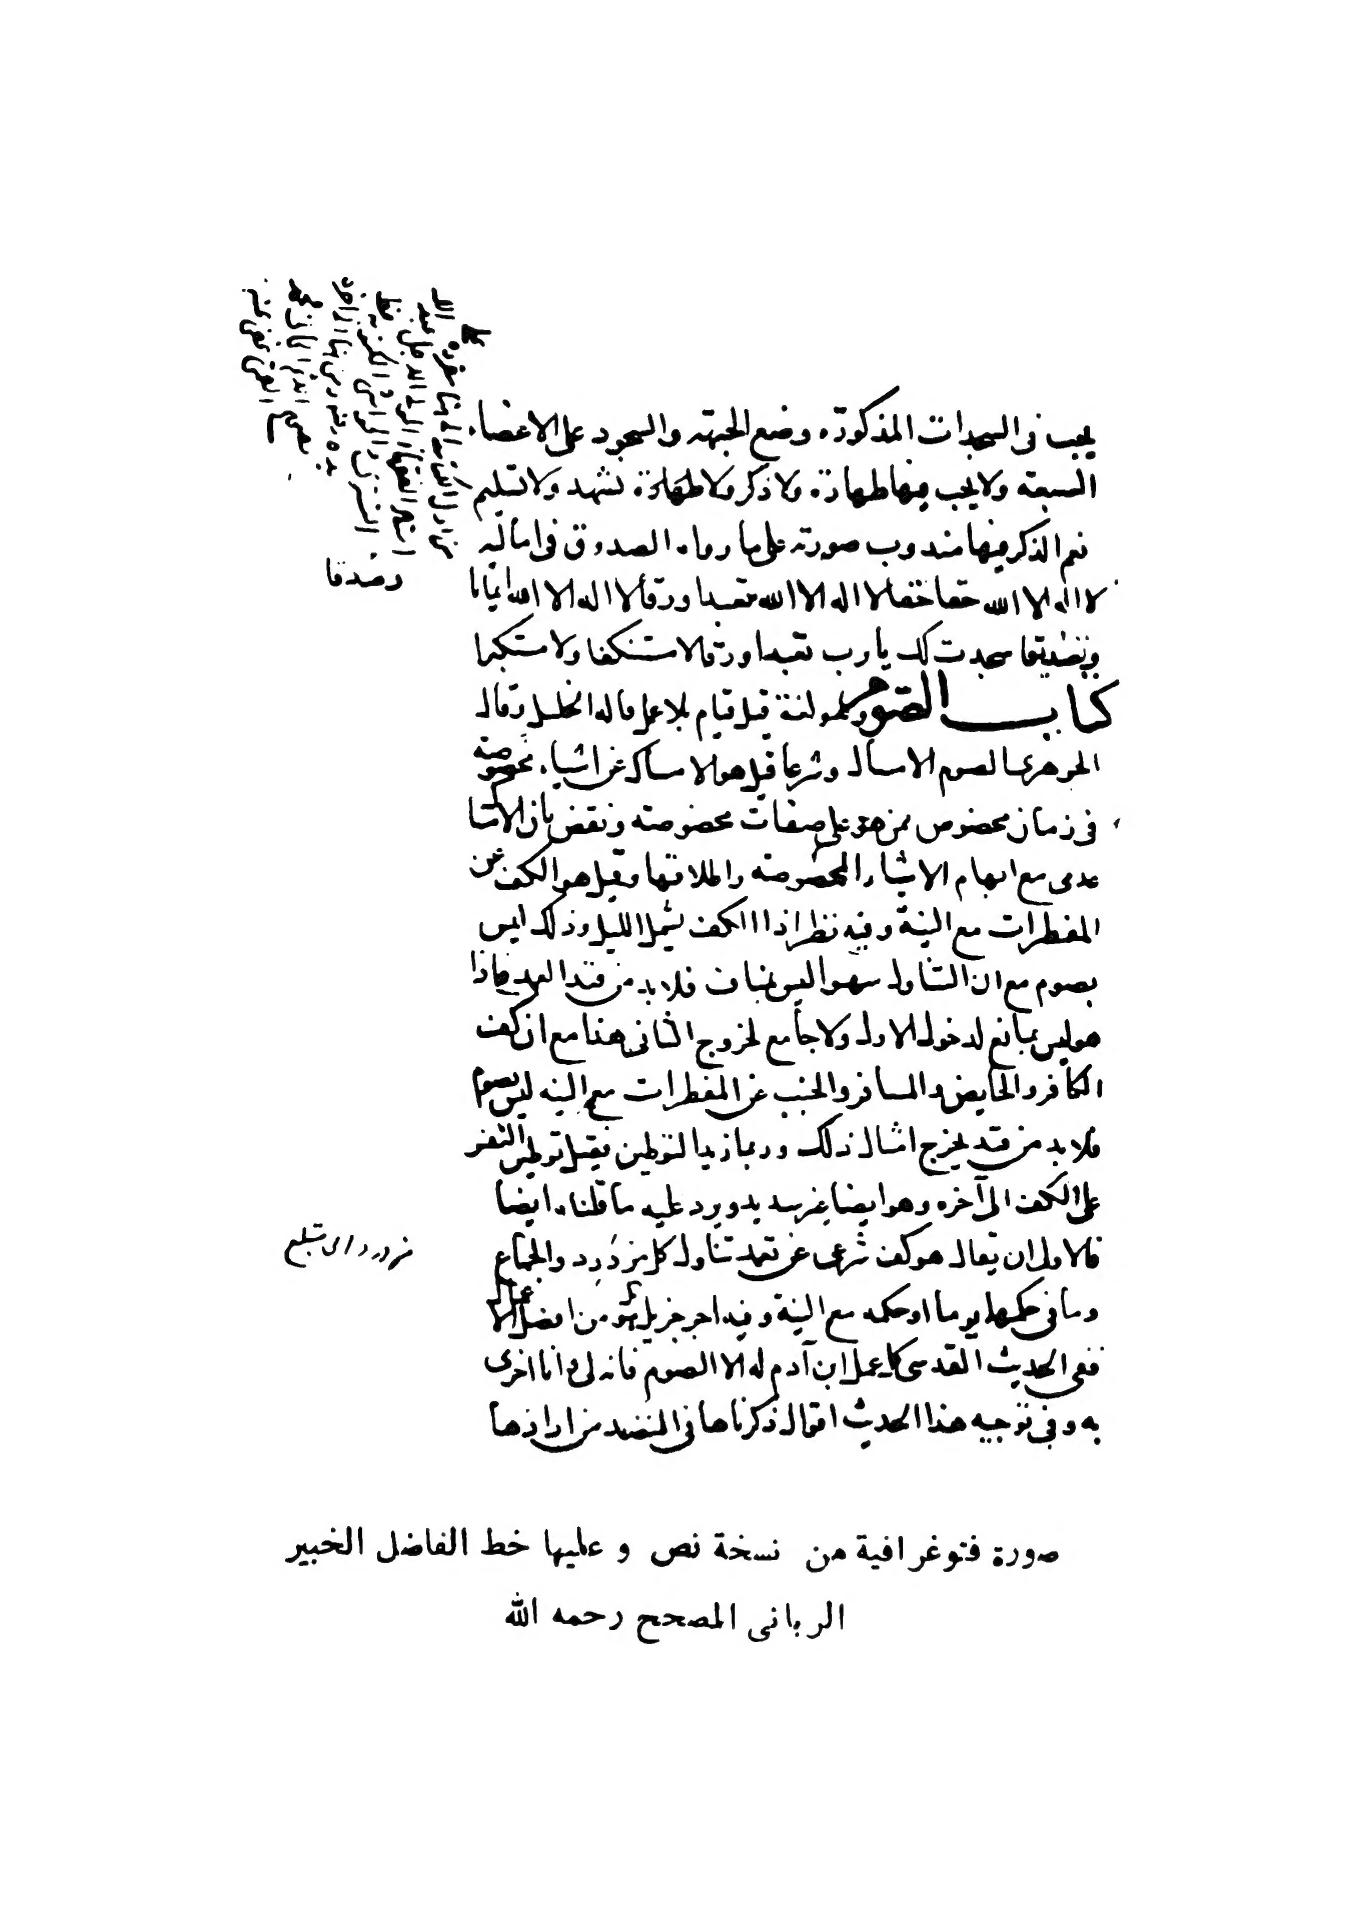 يجب فى السجدات المذكورة وضع الجبهة والسجود على الاعضاء
السبعة ولا يجب فيها طهارة ولا ذكر ولا طهارة تشهد ولا تسليم
نعم الذكر فيها مندوب صورته على ما رواه الصدوق فى اماليه
لا اله الا الله حقا حقا لا اله الا الله تعبدا ورقا لا اله الا الله ايمانا
وتصديقا سجدت لك يا رب تعبدا ورقا لا مستنكفا ولا مستكبرا
كتاب الصوم وهو لغة قيل قيام بلا عمل قاله الخليل وقال
الجوهرى الصوم الامساك وشرعا قيل هو الامساك عن اشياء مخصوصة
فى زمان مخصوص ممن هو على صفات مخصوصة ونقض بان الامساك
عدمى مع ابهام الاشياء المخصوصة واطلاقها وقيل هو الكف عن
المفطرات مع النية وفيه نظر اذ الكف يشمل الليل وذلك ليس
بصوم مع ان التناول سهوا ليس بمناف فلا بد من قيد العمد فاذا
هو ليس بمانع لدخول الاول ولا جامع لخروج الثانى هذا مع ان كف
الكافر والحايض والمسافر والجنب عن المفطرات مع النية ليس بصوم
فلا بد من قيد يخرج امثال ذلك وربما زيد التوطين فقيل توطين النفس
على الكف الى آخره وهو ايضا غير سديد ويرد عليه ما قلناه ايضا
فالاولى ان يقال هو كف شرعى عن تعمد تناول كل مزدرد والجماع
وما فى حكمها يوما او حكمه مع النية وفيه اجر جزيل هو من افضل الاعمال
ففى الحديث القدسى كل عمل ابن آدم له الا الصوم فانه لى وانا اجزى
به وفى توجيه هذا الحديث اقوال ذكرناها فى النضد من ارادها
صورة فتوغرافية من نسخة نص و عليها خط الفاضل الخبير
الربانى المصحح رحمه الله